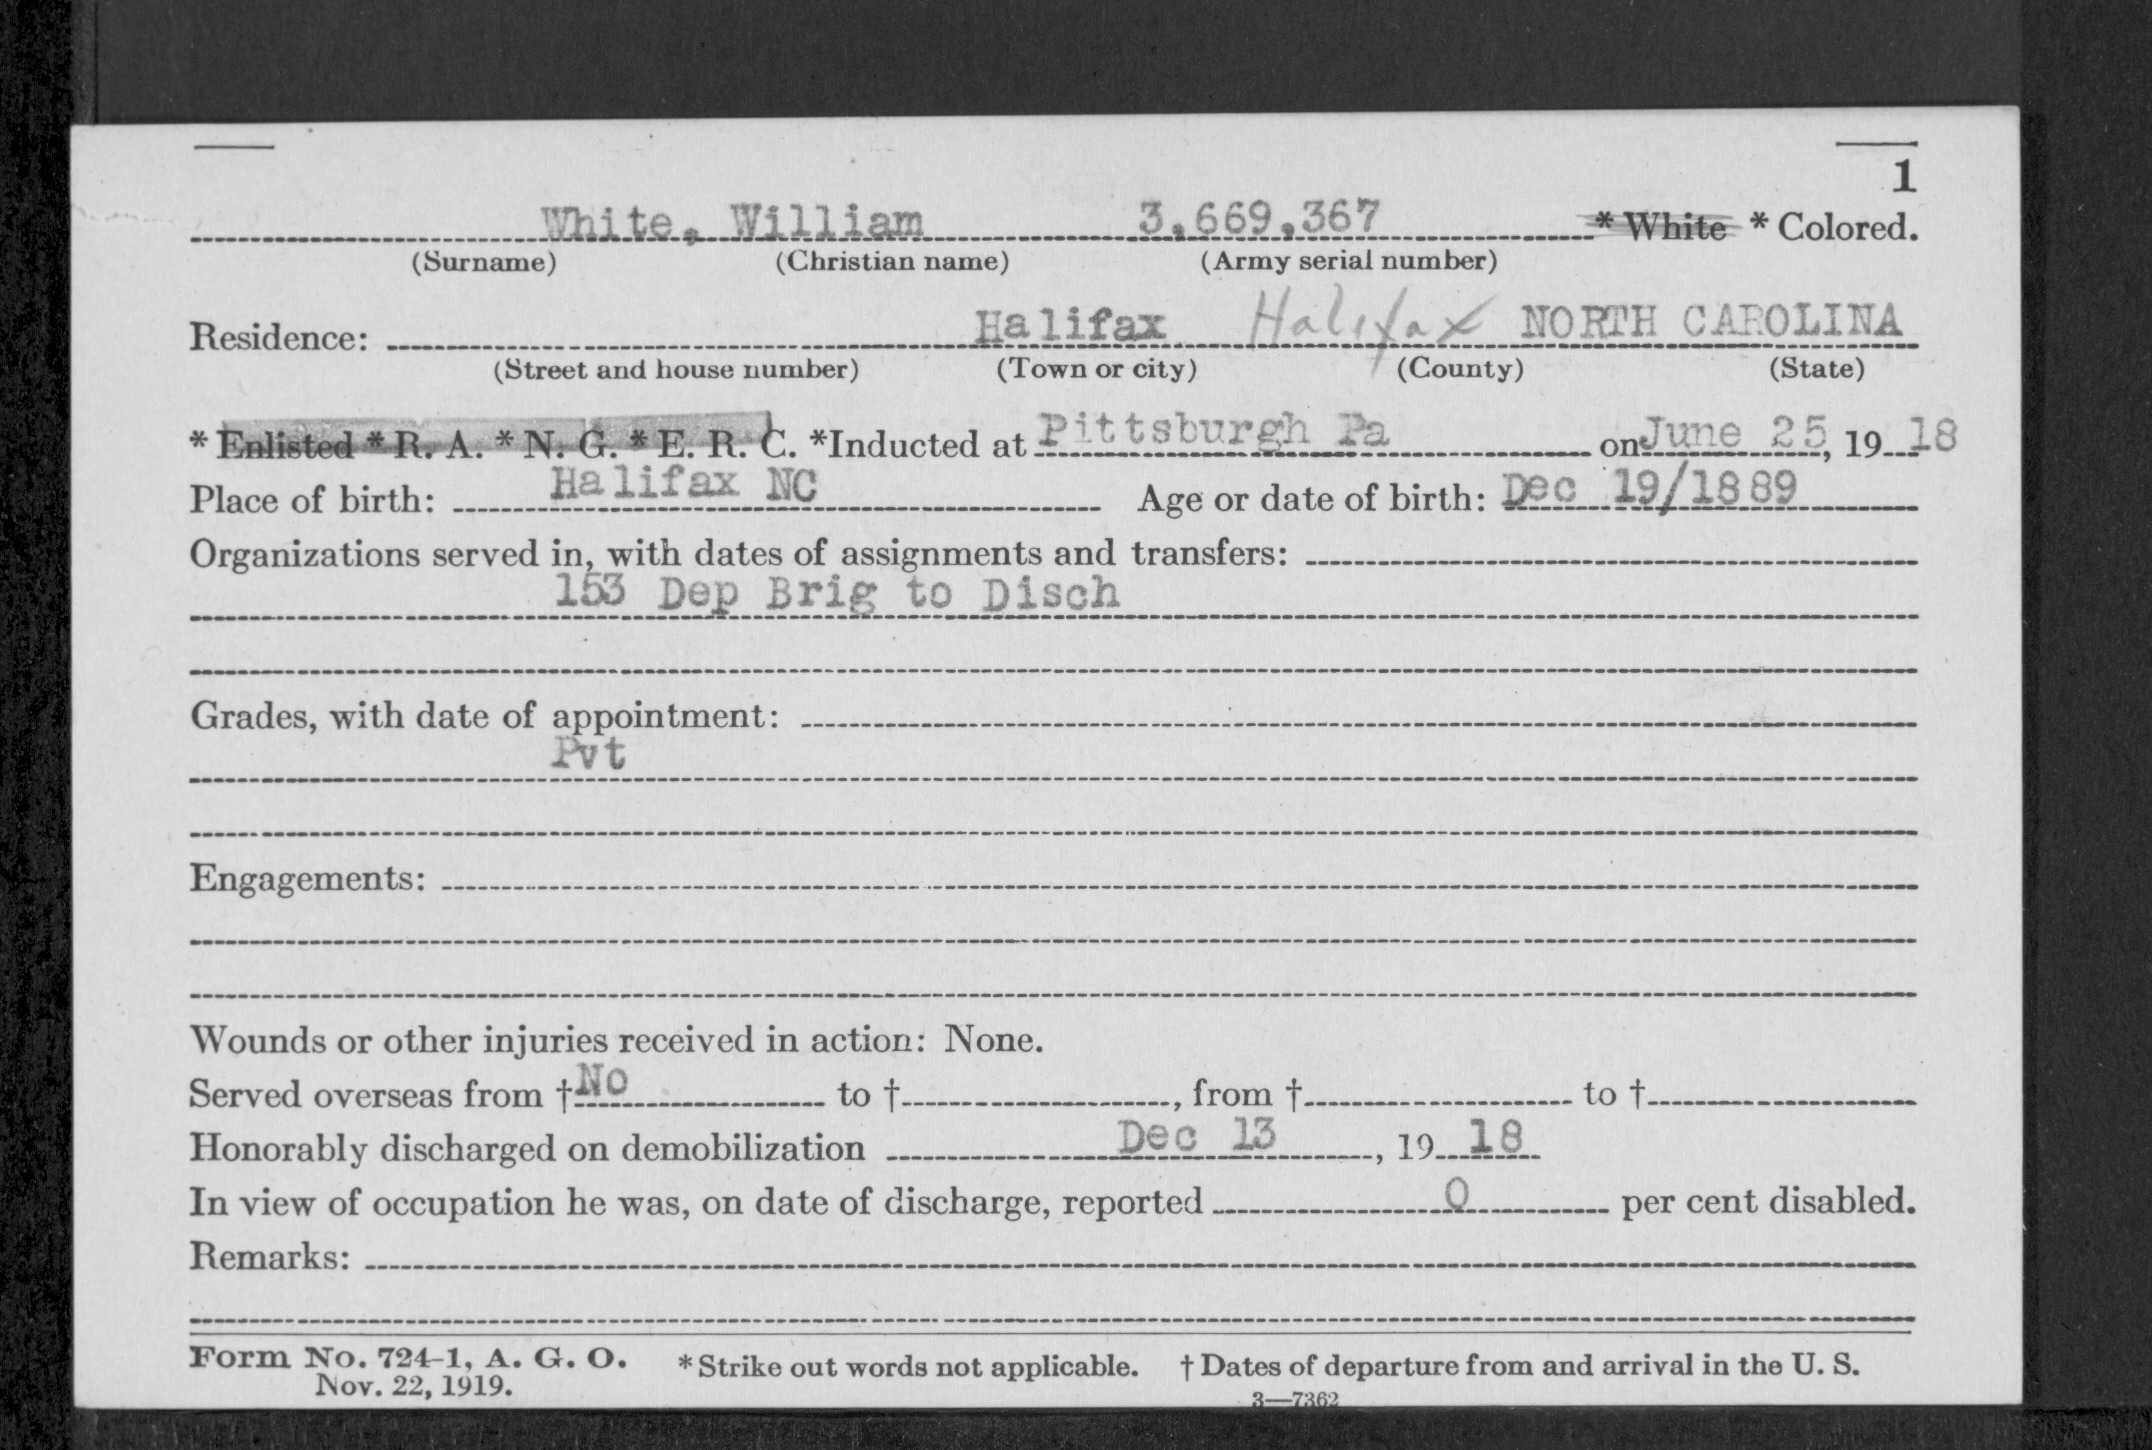 1
White, William 3,669,367 * White * Colored.
(Surname) (Christian name) (Army serial number)
Residence: Halifax Halifax NORTH CAROLINA
(Street and house number) (Town or city) (County) (State)
* Enlisted * R. A. * N. G. * E. R. C. *Inducted at Pittsburgh Pa on June 25, 1918
Place of birth: Halifax NC Age or date of birth: Dec 19/1889
Organizations served in, with dates of assignments and transfers:
153 Dep Brig to Disch
Grades, with date of appointment:
Pvt
Engagements:
Wounds or other injuries received in action: None.
Served overseas from † No to †, from † to †
Honorably discharged on demobilization Dec 13, 1918
In view of occupation he was, on date of discharge, reported 0 per cent disabled.
Remarks:
Form No. 724-1, A. G. O. * Strike out words not applicable. † Dates of departure from and arrival in the U. S.
Nov. 22, 1919.
3—7362